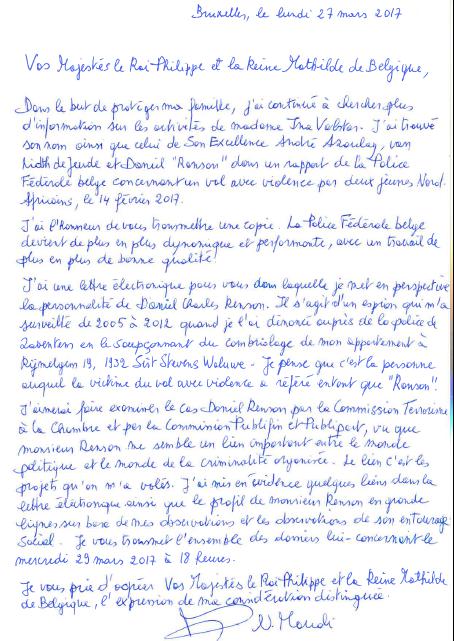 Bruxelles, le lundi 27 mars 2017
Vos Majestés le Roi Philippe et la Reine Mathilde de Belgique,
Dans le but de protéger ma famille, j'ai continué à chercher plus
d'information sur les activités de madame Ina
J'ai trouvé
son nom ainsi que celui de Son Excellence André Azoulay, van
et Daniel "Ronson" dans un rapport de la Police
Fédérale belge concernant un vol avec violence par deux jeunes Nord.
Africains, le 14 février 2017.
J'ai l'Honneur de vous transmettre une copie. La Police Fédérale belge
devient de plus en plus dynamique et performante, avec un travail de
plus en plus de bonne qualité!
J'ai une lettre électronique pour vous dans laquelle je met en perspective
la personnalité de Daniel Charles Renson. Il s'agit d'un espion qui m'a
surveillé de 2005 à 2012 quand je l'ai dénoncé auprès de la police de
Zaventem en le soupçonnant du cambriolage de mon appartement à
19, 1932 Sint Stevens Woluwe. Je pense que c'est la personne
auquel la victime du vol avec violence a référé entant que "Ronson".
J'aimerai faire examiner le cas Daniel Renson par la Commission Terrorisme
à la Chambre et par la Commission Publifin et Publipart, vu que
monsieur Renson me semble un lien important entre le monde
politique et le monde de la criminalité organisée. Le lien c'est les
projets qu'on m'a volés. J'ai mis en évidence quelques liens dans la
lettre électronique ainsi que le profil de monsieur Renson en grande
lignes sur base de mes observations et les observations de son entourage
social. Je vous transmet l'ensemble des dossiers lui-concernant le
mercredi 29 mars 2017 à 18 heures.
Je vous prie d'agréer Vos Majestés le Roi Philippe et la Reine Mathilde
de Belgique, l'expression de ma considération distinguée.